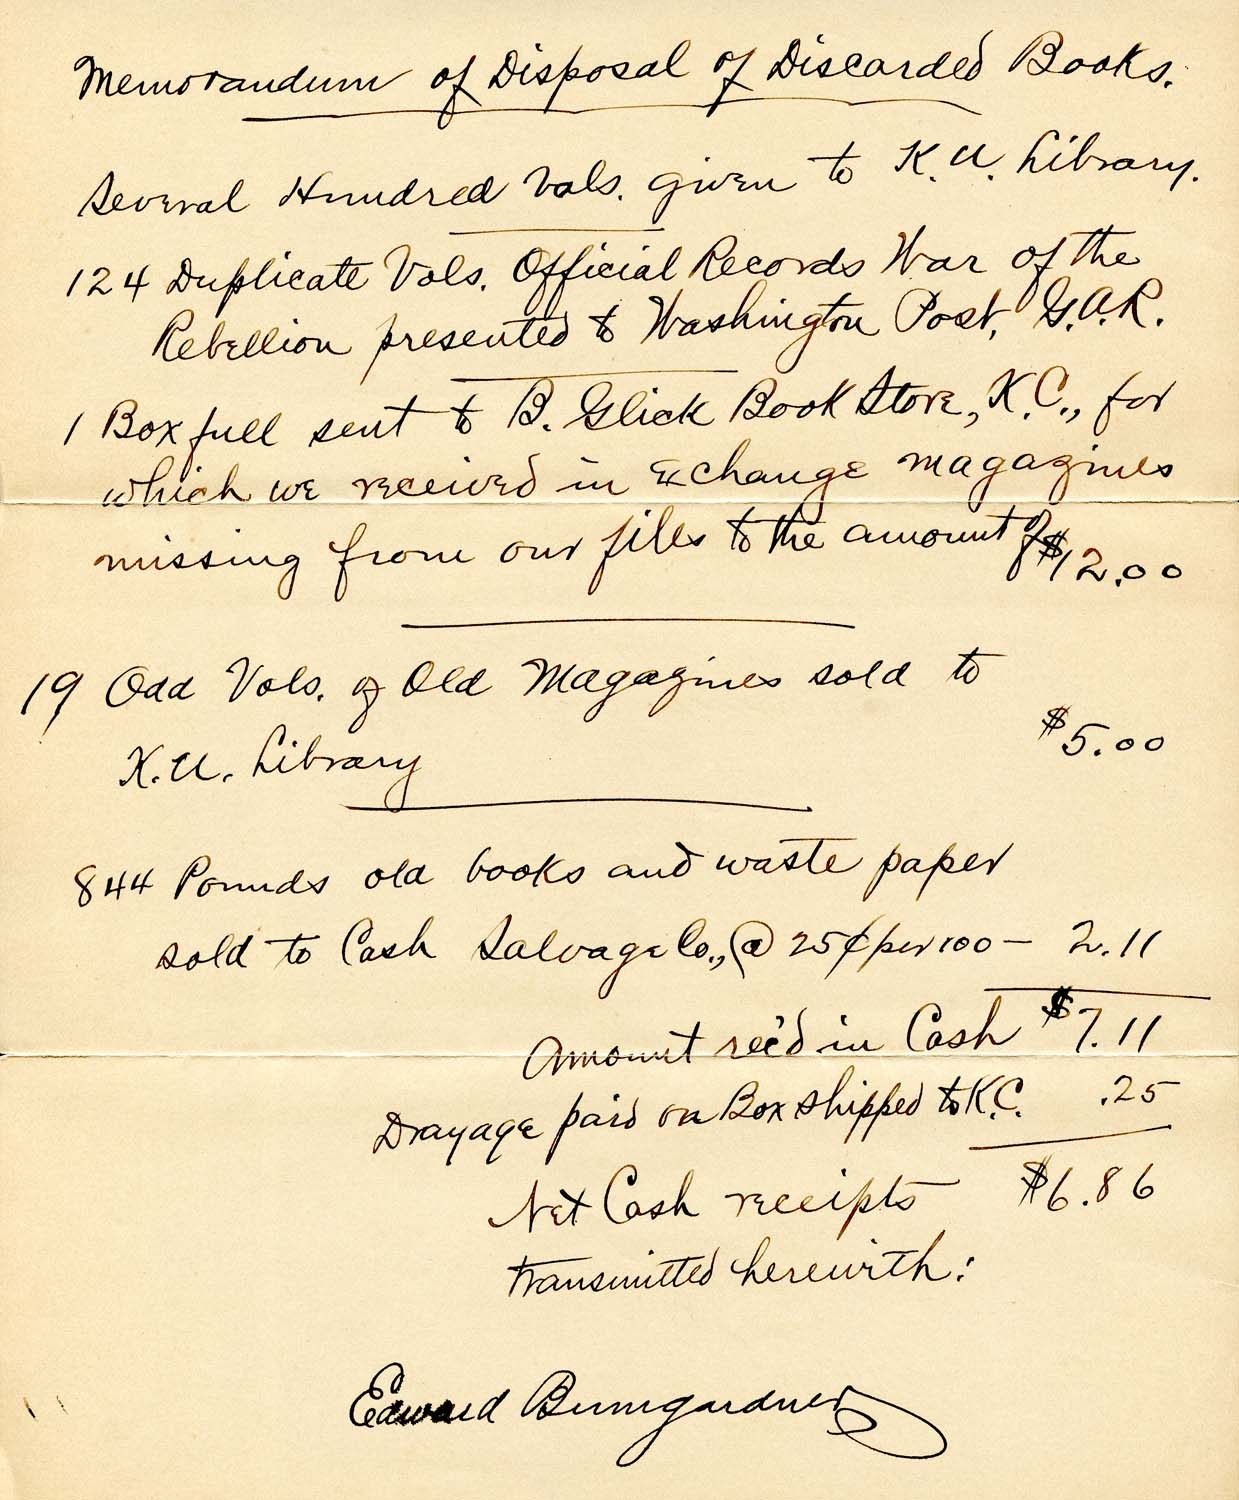 Memorandum of Disposal of Discarded Books.
Several Hundred Vols. given to K.U. Library.
124 Duplicate Vols. Official Records War of the
Rebellion presented to Washington Post, G.A.R.
1 Box full sent to B. Glick Book Store, K.C., for
which we received in exchange magazines
missing from our files to the amount of $12.00
19 Odd Vols. of Old Magazines sold to
K.U. Library $5.00
844 Pounds old books and waste paper
sold to Cash Salvage Co., @ 25¢ per 100 — 2.11
Amount rec'd in Cash $7.11
Drayage paid on Box shipped to K.C. .25
Net Cash receipts $6.86
transmitted herewith:
Edward Bumgardner